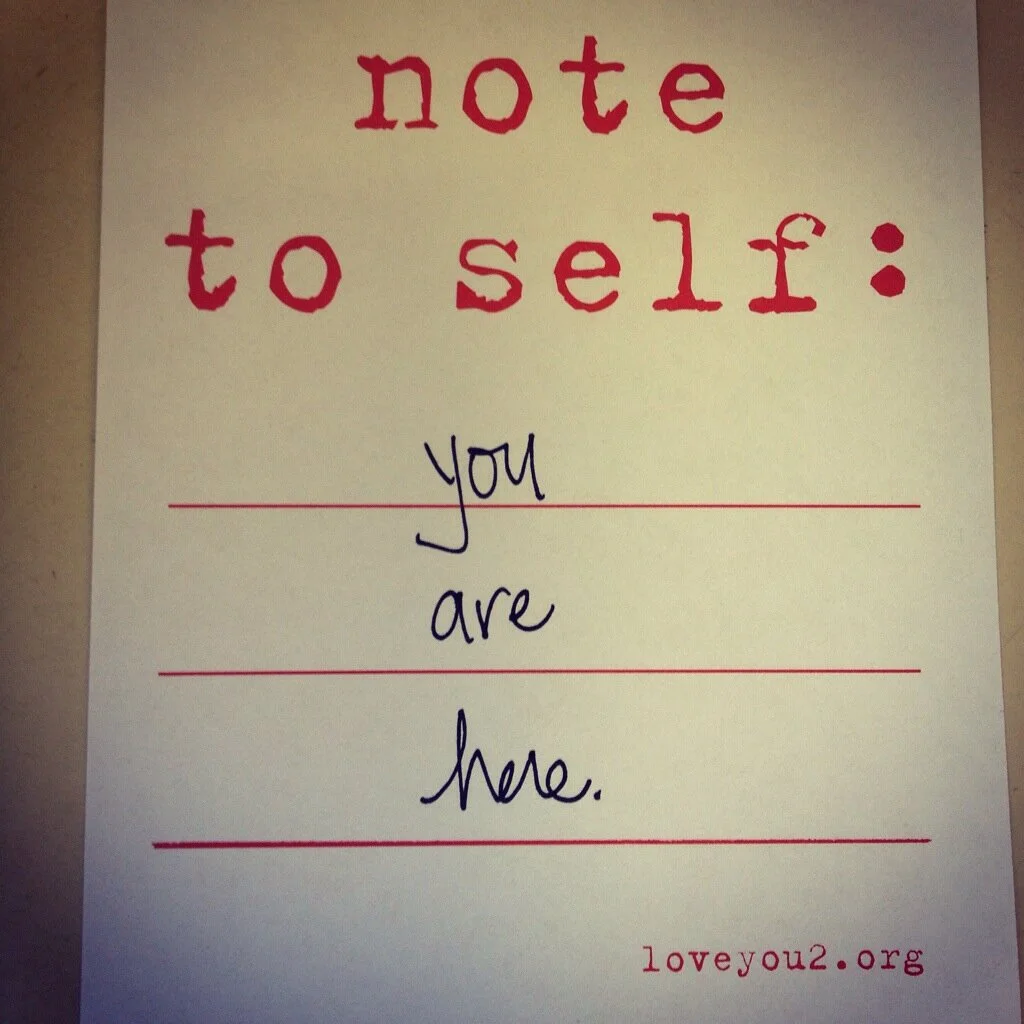 note
to self:
you
are
here.
loveyou2.org